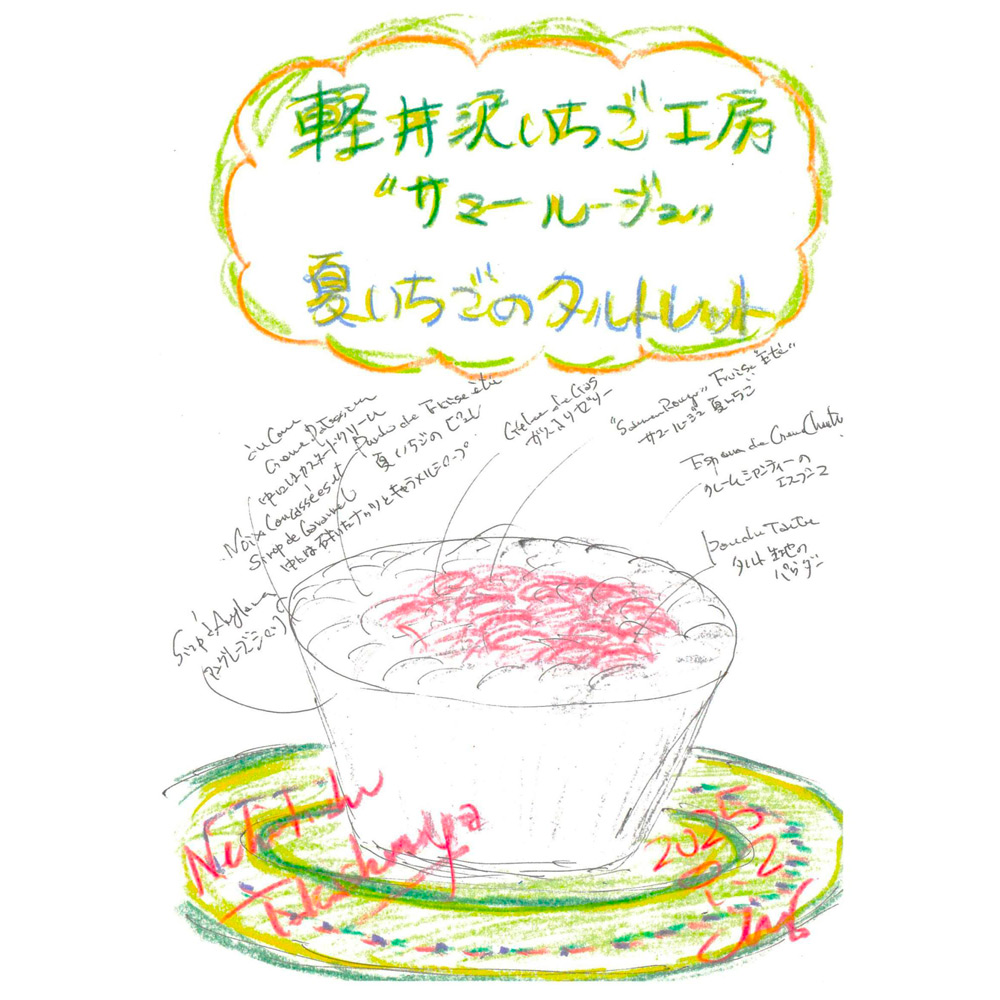 軽井沢いちご工房
"サマールージュ"
夏いちごのタルトレット
au Coeur
Crème Patissière
中にはカスタードクリーム
Noix Concassées et
Sirop de Caramel
中には砕いたナッツとキャラメルシロップ
夏いちごのピュレ
Gelée de Cas
カシスゼリー
"Summer Rouge" Fraise été"
サマールージュ 夏いちご
Espuma de Creme Chanti
クレームシャンティーの
エスプーマ
Poudre Tarte
タルト生地の
パウダー
Sirop d'Anglaise
Takahashiya
2025
Chef